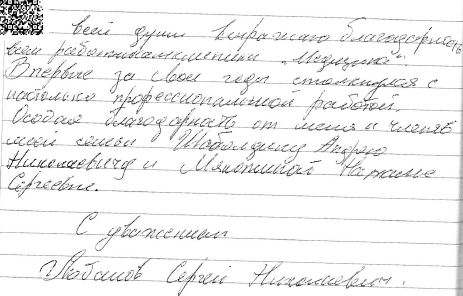 всей души выражаю благодарность
всем работникам клиники "Медицина".
Впервые за свои годы столкнулся с
настолько профессиональной работой.
Особая благодарность от меня и членов
моей семьи Шаболдину Андрею
Николаевичу и Наталье
Сергеевне.
С уважением
Лобанов Сергей Николаевич.